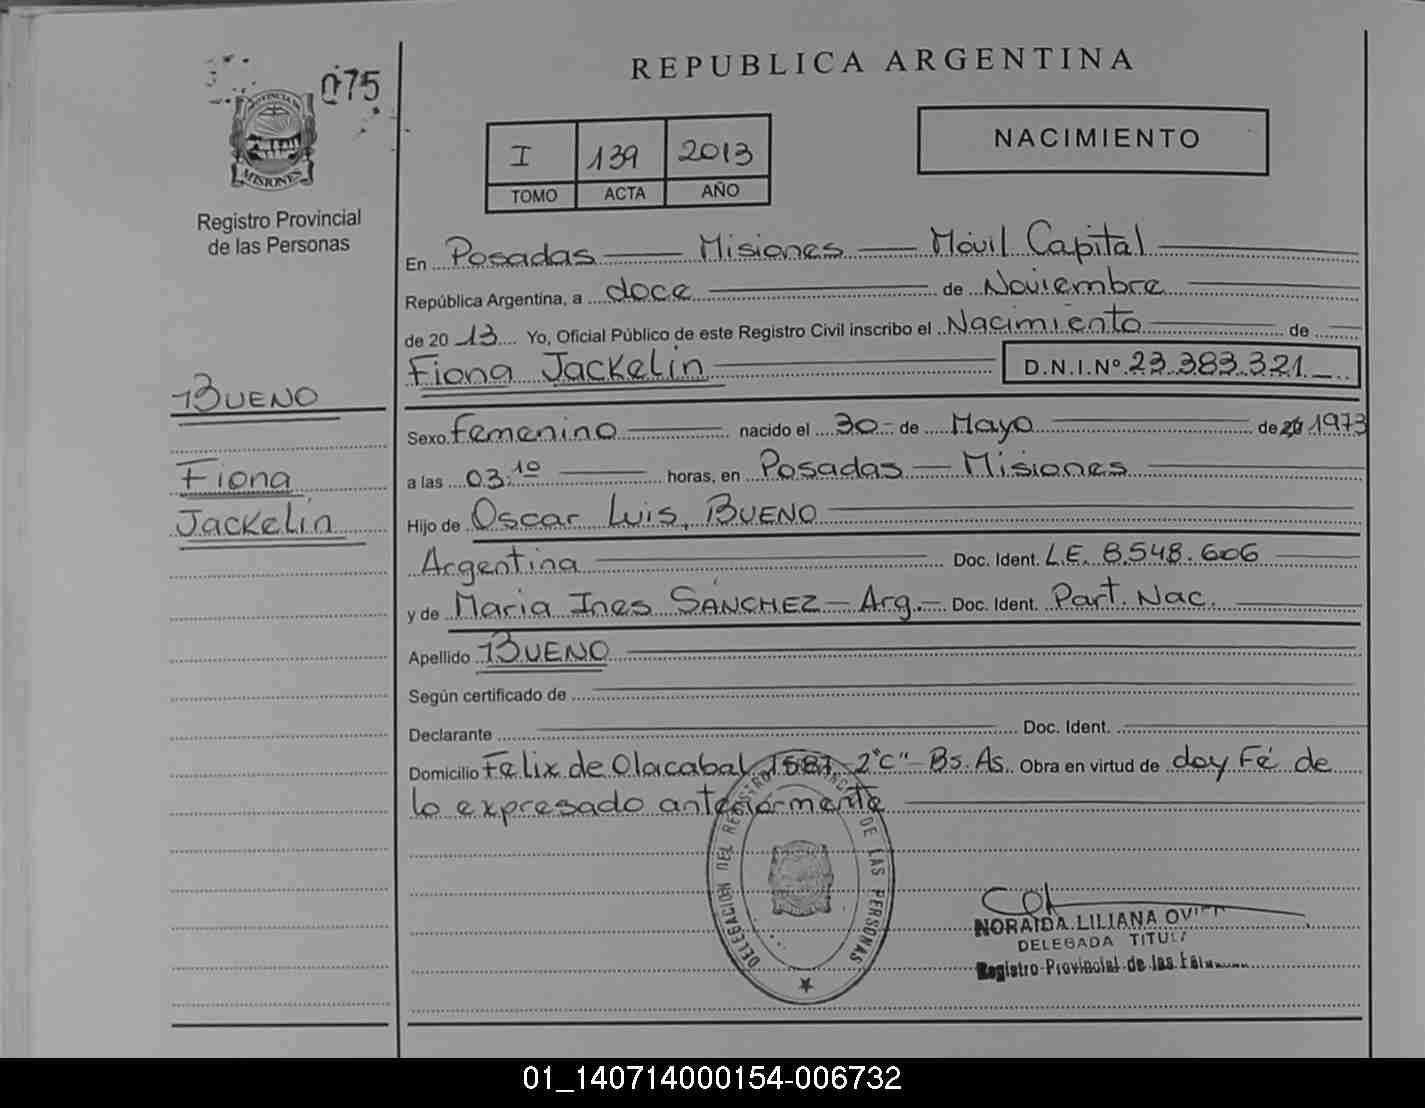 REPUBLICA ARGENTINA
075
PROVINCIA DE
MISIONES
Registro Provincial
de las Personas
I 139 2013
TOMO ACTA AÑO
NACIMIENTO
En Posadas — Misiones — Móvil Capital
República Argentina, a doce de Noviembre
de 2013 Yo, Oficial Público de este Registro Civil inscribo el Nacimiento de
Fiona Jackelin D.N.I.Nº 23.383.321
BUENO
Fiona
Jackelin
Sexo Femenino nacido el 30 de Mayo de 1973
a las 03:10 horas, en Posadas — Misiones
Hijo de Oscar Luis, BUENO
Argentina Doc. Ident. L.E. 8.548.606
y de Maria Ines SÁNCHEZ — Arg. — Doc. Ident. Part. Nac.
Apellido BUENO
Según certificado de
Declarante Doc. Ident.
Domicilio Felix de Olacabal 1587 2"C" Bs. As. Obra en virtud de doy Fé de
lo expresado anteriormente
DELEGACION DEL REGISTRO DE LAS PERSONAS
NORAIDA LILIANA
DELEGADA
Registro Provincial de las
01_140714000154-006732